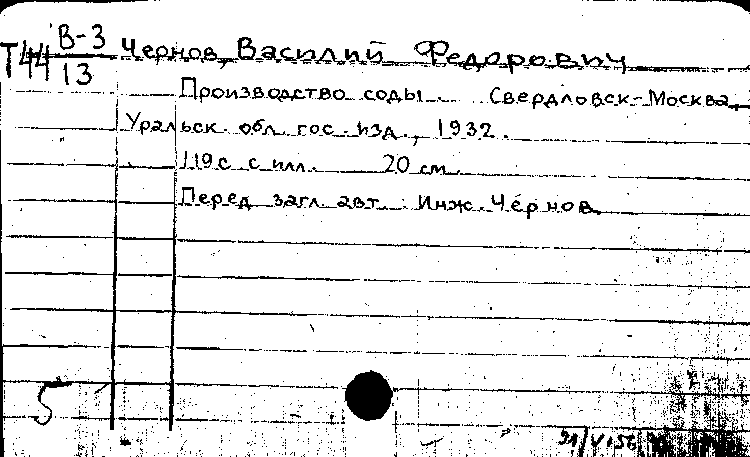 Т44 В-3/13 Чернов, Василий Федорович
Производство соды. Свердловск-Москва,
Уральск. обл. гос. изд., 1932.
119 с. с илл. 20 см.
Перед загл. авт.: Инж. Чернов.
5